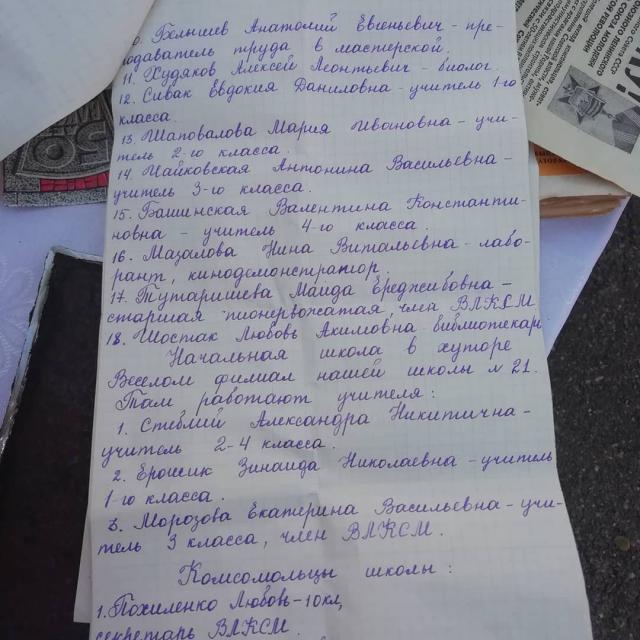 0. Бельшев Анатолий Евгеньевич - пре-
подаватель труда в мастерской.
11. Худяков Алексей Леонтьевич - биолог.
12. Сивак Евдокия Даниловна - учитель 1-го
класса.
13. Шаповалова Мария Ивановна - учи-
тель 2-го класса.
14. Майковская Антонина Васильевна -
учитель 3-го класса.
15. Башинская Валентина Константи-
новна - учитель 4-го класса.
16. Мазалова Нина Витальевна - лабо-
рант, кинодемонстратор.
17. Тутаришева Маида Ереджибовна -
старшая пионервожатая, член ВЛКСМ
18. Шостак Любовь Акимовна - библиотекарь
Начальная школа в хуторе
Веселом филиал нашей школы № 21.
Там работают учителя:
1. Стеблий Александра Никитична -
учитель 2-4 класса.
2. Ерошик Зинаида Николаевна - учитель
1-го класса.
3. Морозова Екатерина Васильевна - учи-
тель 3 класса, член ВЛКСМ.
Комсомольцы школы:
1. Похиленко Любовь - 10 кл,
секретарь ВЛКСМ.